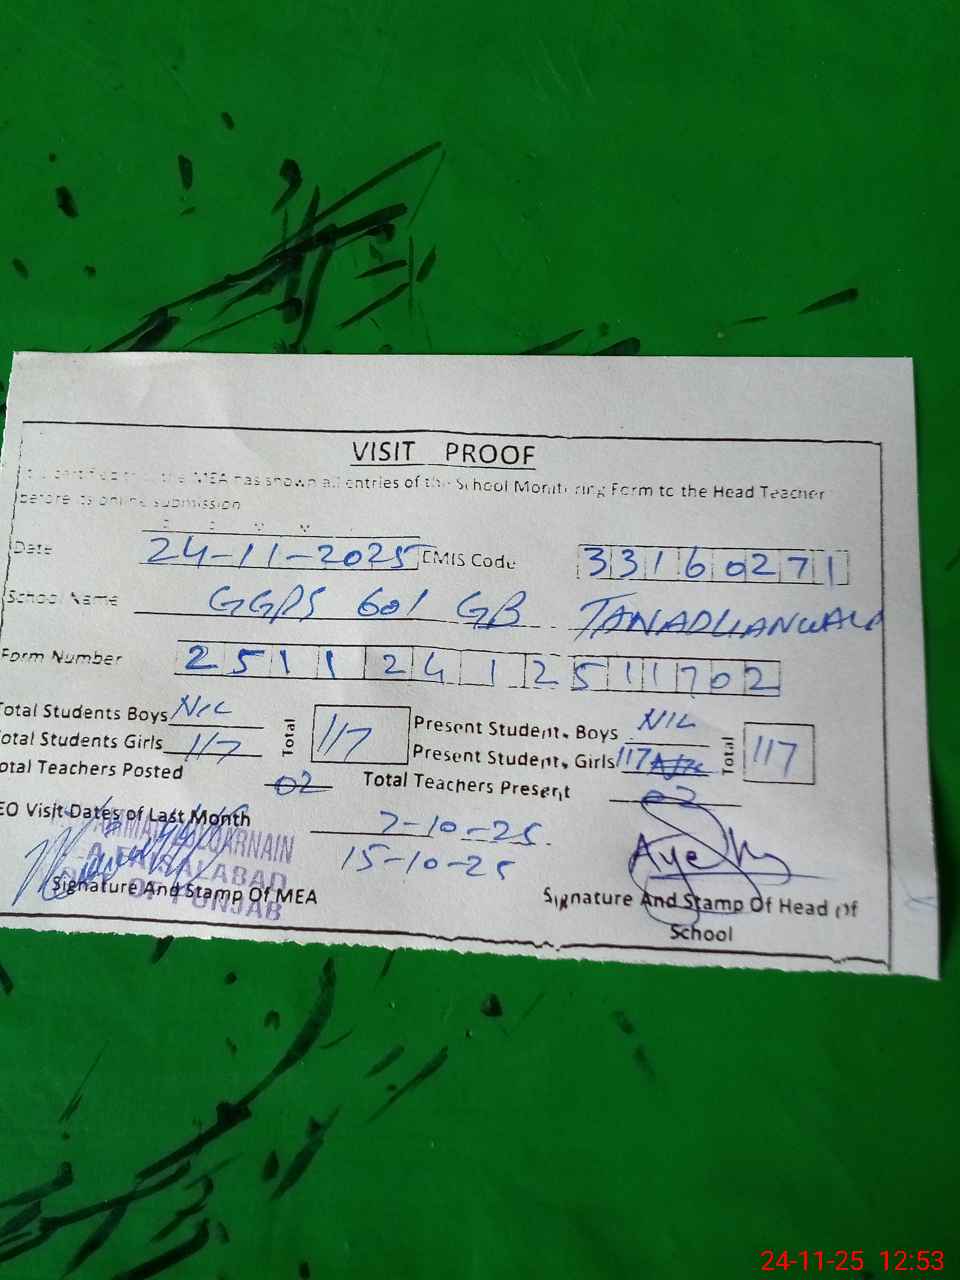 VISIT PROOF
It is certified that the MEA has shown all entries of the School Monitoring Form to the Head Teacher
before its online submission
Date 24-11-2025 EMIS Code 33160271
School Name GGPS 601 GB TANADLIANWALA
Form Number 25112412511702
Total Students Boys NIL Total 117 Present Student, Boys NIL Total 117
Total Students Girls 117 Present Student, Girls 117
Total Teachers Posted 02 Total Teachers Present 02
EO Visit Dates of Last Month 7-10-25.
15-10-25
FAISALABAD
OF PUNJAB
Signature And Stamp Of MEA
Signature And Stamp Of Head Of
School
24-11-25 12:53